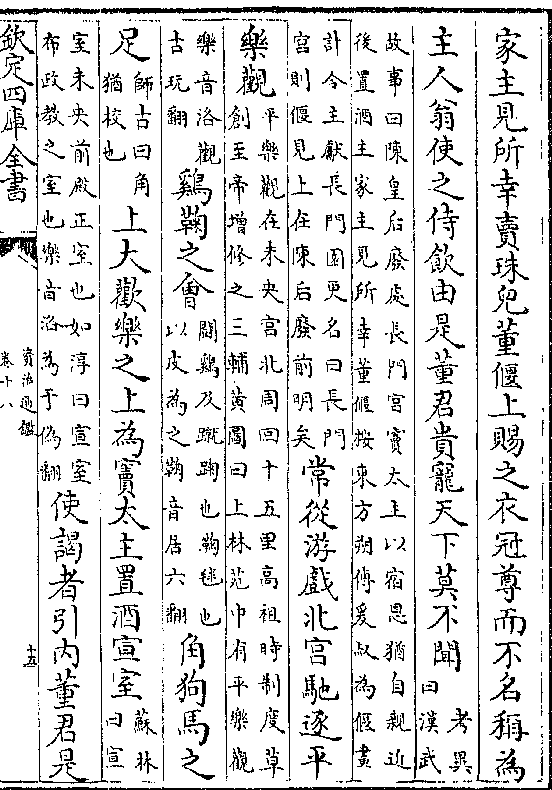 家主見所幸賣珠兒董偃上賜之衣冠尊而不名稱為
主人翁使之侍飲由是董君貴寵天下莫不聞考異曰漢武
故事曰陳皇后廢處長門宮竇太主以宿恩猶自親近
後置酒主家主見所幸董偃按東方朔傳爰叔為偃畫
計令主獻長門園更名曰長門宮則偃見上在陳后廢前明矣常從游戲北宮馳逐平
樂觀平樂觀在未央宮北周回十五里高祖時制度草創至帝增修之三輔黃圖曰上林苑中有平樂觀
樂音洛觀古玩翻鷄鞠之會鬭鷄及蹴踘也鞠毬也以皮為之鞠音居六翻角狗馬之
足師古曰角猶校也上大歡樂之上為竇太主置酒宣室蘇林曰宣
室未央前殿正室也如淳曰宣室布政教之室也樂音洛為于偽翻使謁者引內董君是
欽定四庫全書
資治通鑑
卷十八
十五